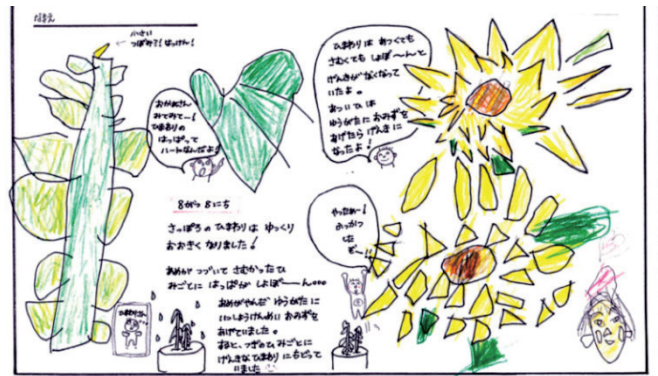 なまえ
小さい
つぼみ?!はっけん!
おかあさん
みてみてー!
ひまわりの
はっぱって
ハートなんだよ!
ひまわりは あつくても
さむくても しょぼ〜んと
げんきがなくなって
いたよ。
あついひは
ゆうがたにおみずを
あげたらげんきに
なったよ!
8がつ8にち
さっぽろの ひまわりは ゆっくり
おおきく なりました!
あめが つづいて さむかったひ
みごとに はっぱが しょぼ〜〜ん。。。
あめがやんだ ゆうがたに
いっしょうけんめい おみずを
あげていました。
すると、つぎのひ みごとに
げんきな ひまわり にもどって
いました
やったぁー!
おっかつ
した
ぞー